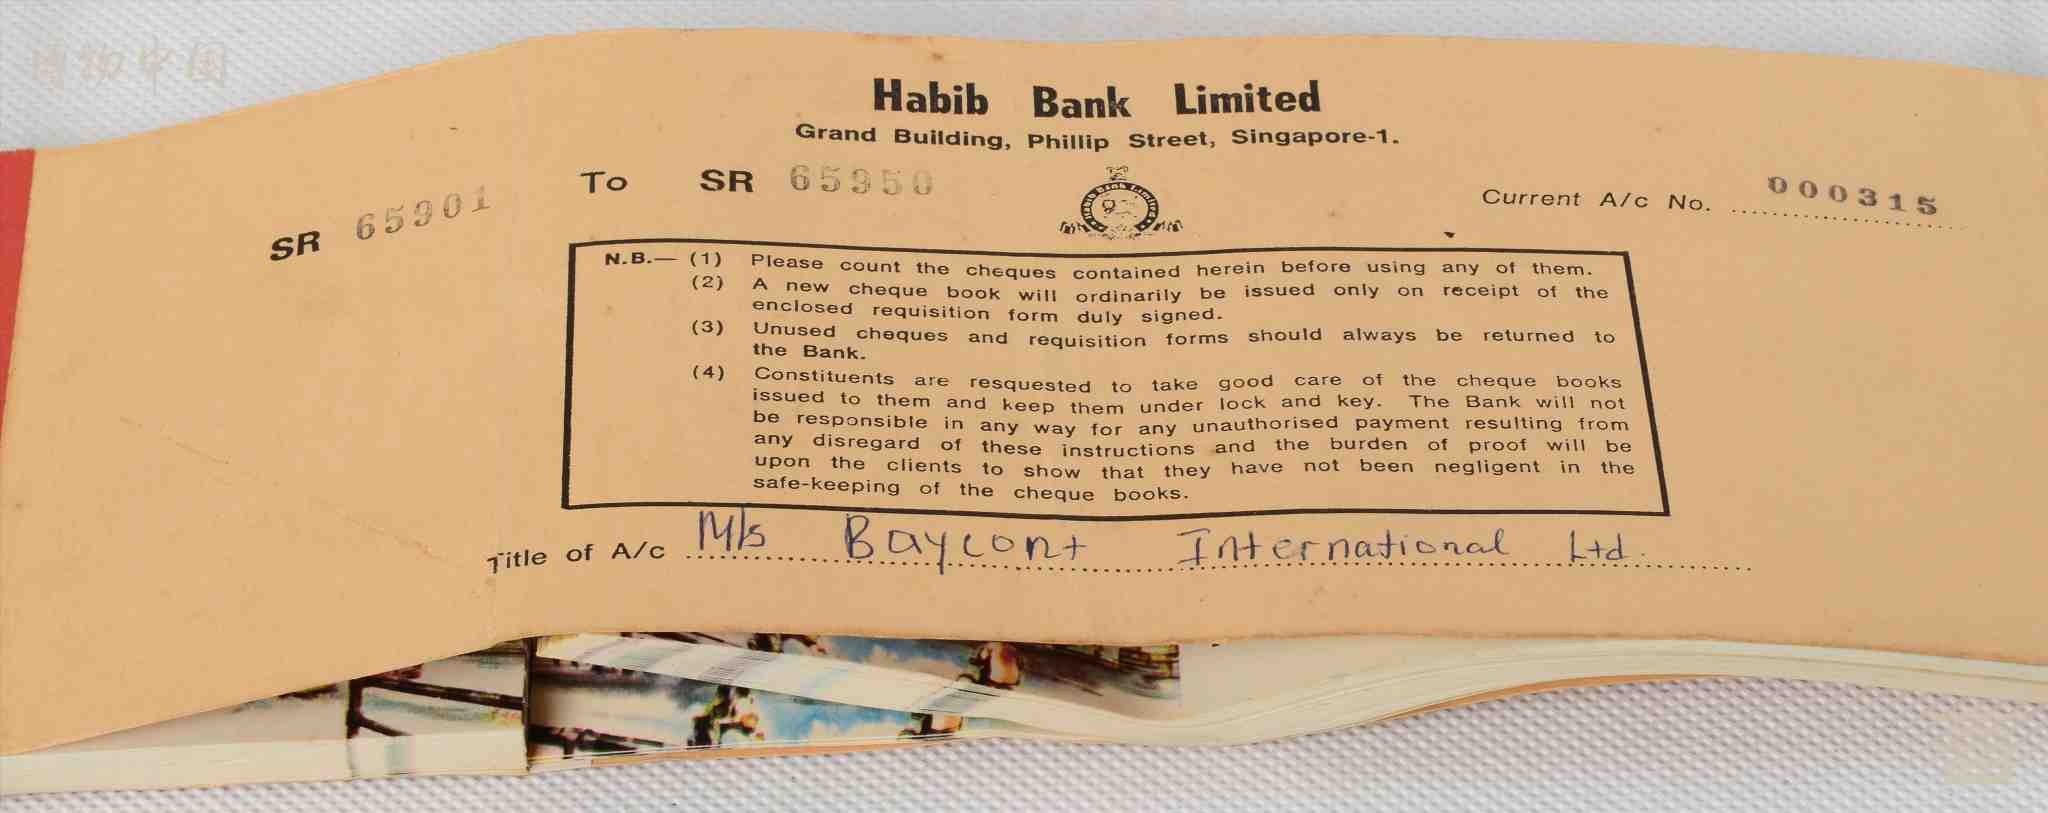 博物中国
Habib Bank Limited
Grand Building, Phillip Street, Singapore-1.
SR 65901 To SR 65950
Habib Bank Limited
Current A/c No. 000315
N.B.— (1) Please count the cheques contained herein before using any of them.
(2) A new cheque book will ordinarily be issued only on receipt of the
enclosed requisition form duly signed.
(3) Unused cheques and requisition forms should always be returned to
the Bank.
(4) Constituents are resquested to take good care of the cheque books
issued to them and keep them under lock and key. The Bank will not
be responsible in any way for any unauthorised payment resulting from
any disregard of these instructions and the burden of proof will be
upon the clients to show that they have not been negligent in the
safe-keeping of the cheque books.
Title of A/c M/s Baycont International Ltd.